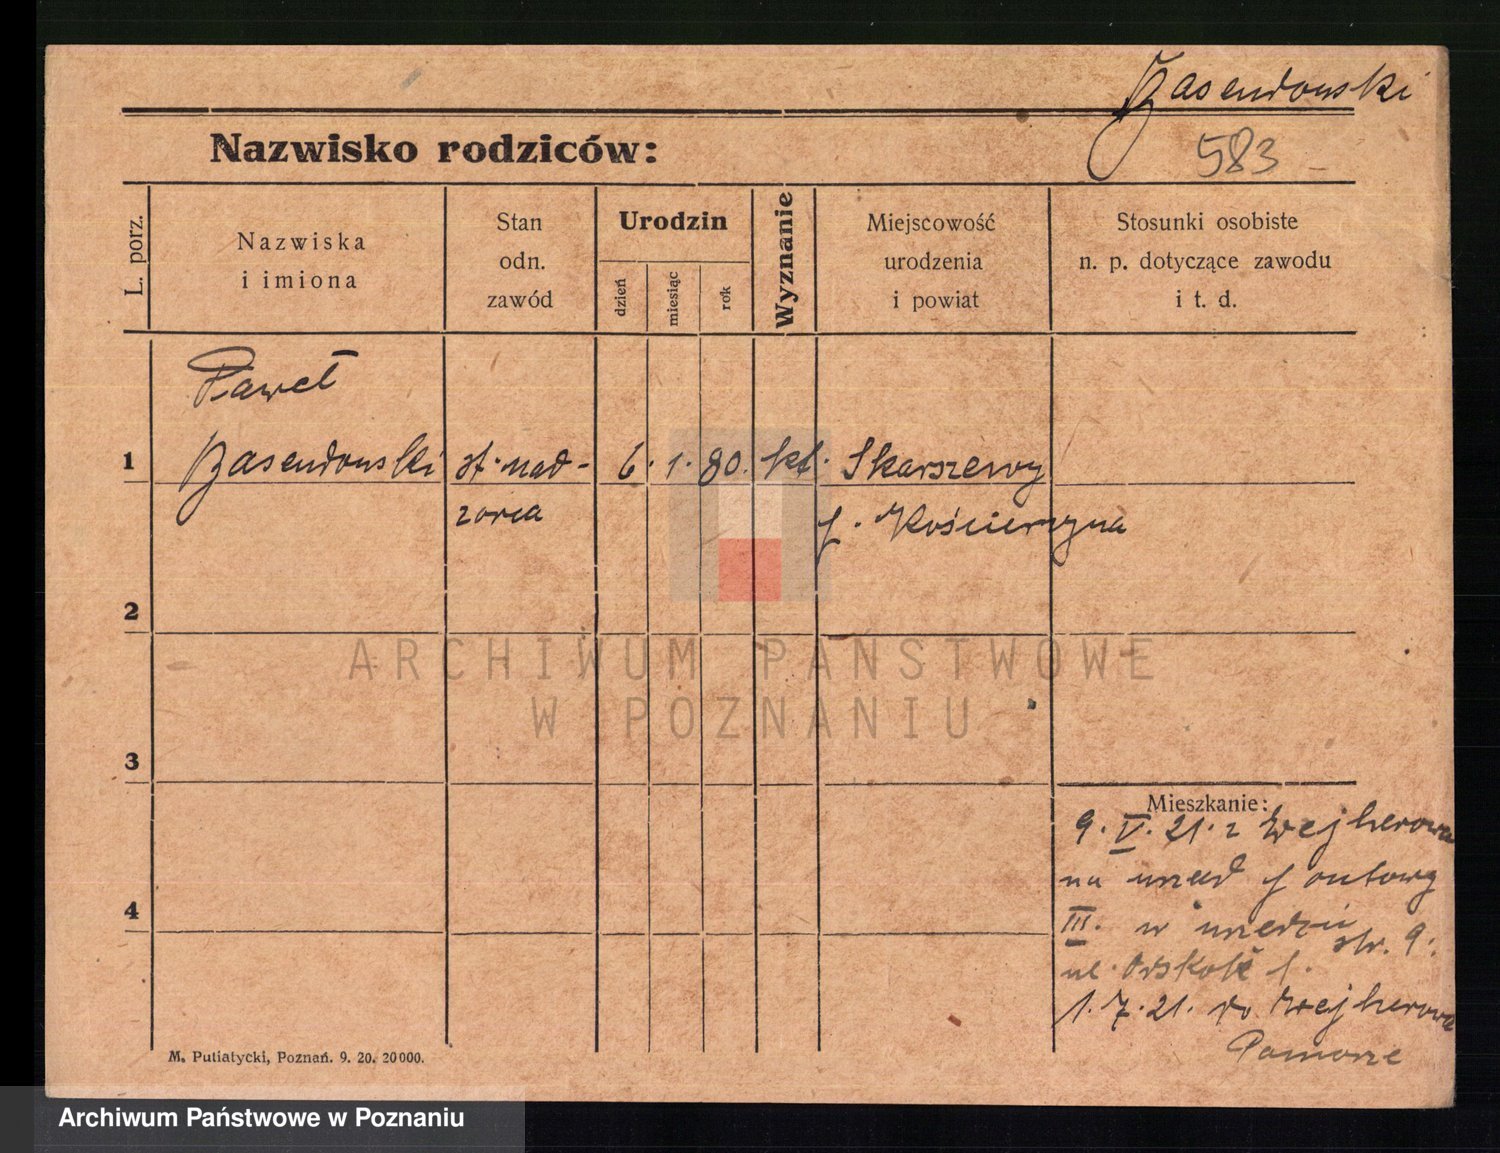 Basendowski
583
Nazwisko rodziców:
L. porz.
Nazwiska
i imiona
Stan
odn.
zawód
Urodzin
dzień
miesiąc
rok
Wyznanie
Miejscowość
urodzenia
i powiat
Stosunki osobiste
n. p. dotyczące zawodu
i t. d.
Paweł
1 Basendowski st. nad- 6. 1. 80. kt. Skarszewy
zorca p. Kościerzyna
2
ARCHIWUM PAŃSTWOWE
W POZNANIU
3
Mieszkanie:
9. V. 21. z Wejherowa
na urząd
4
III. w urzędzie
ul. str. 9.
1. 7. 21. do Wejherowa
Pomorze
M. Putiatycki, Poznań. 9. 20. 20000.
Archiwum Państwowe w Poznaniu